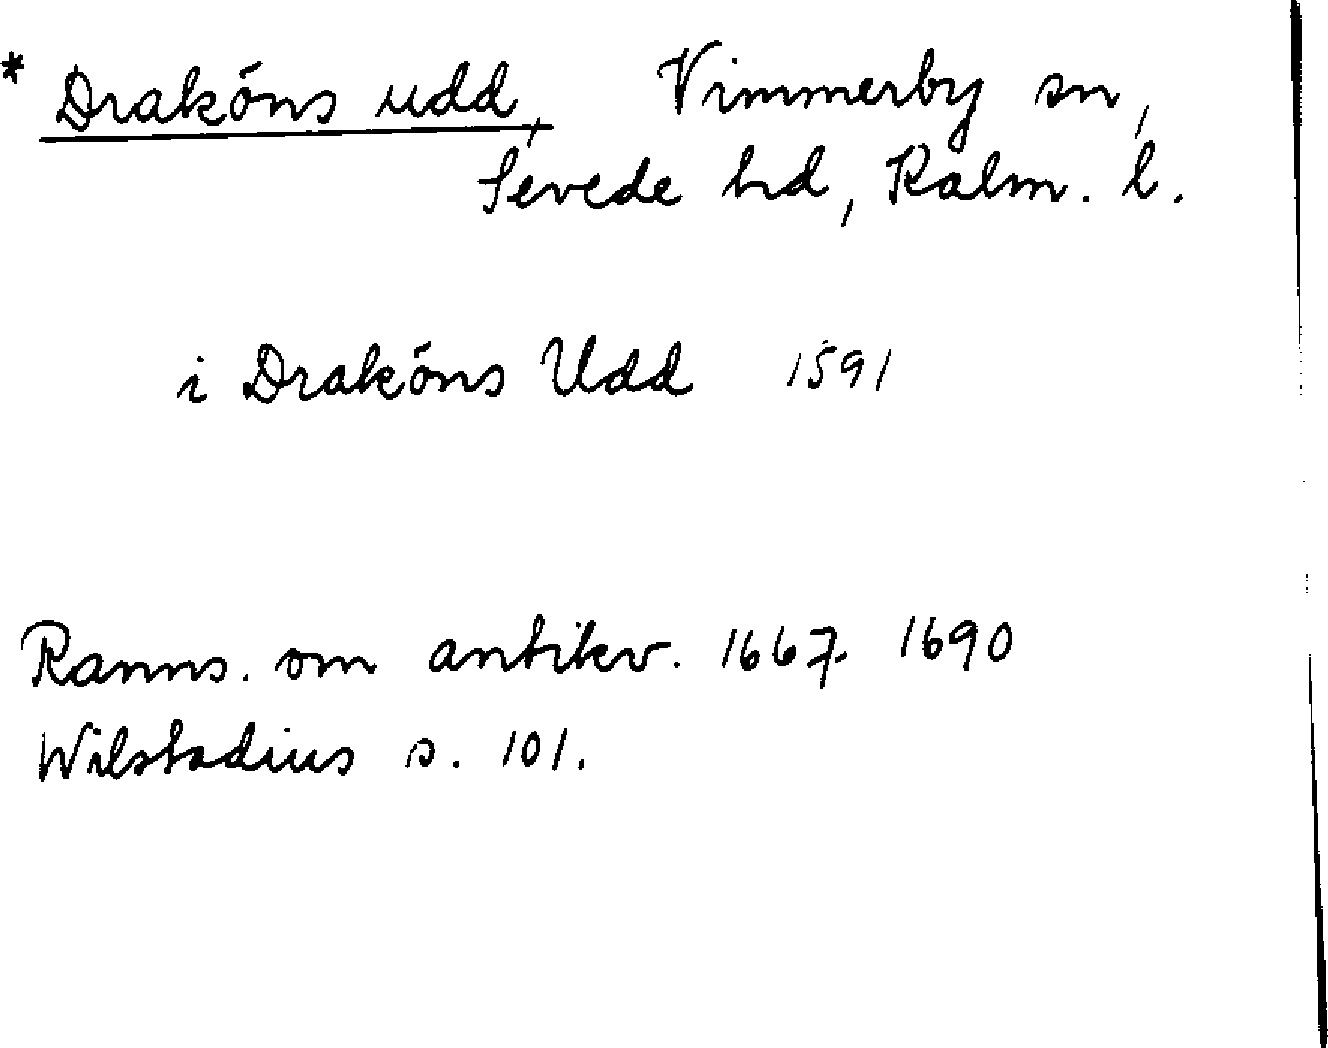 * Draköns udd, Vimmerby sn,
Sevede hd, Kalm. l.
i Draköns Udd 1591
Ranns. om antikv. 1667-1690
Wilstadius s. 101.